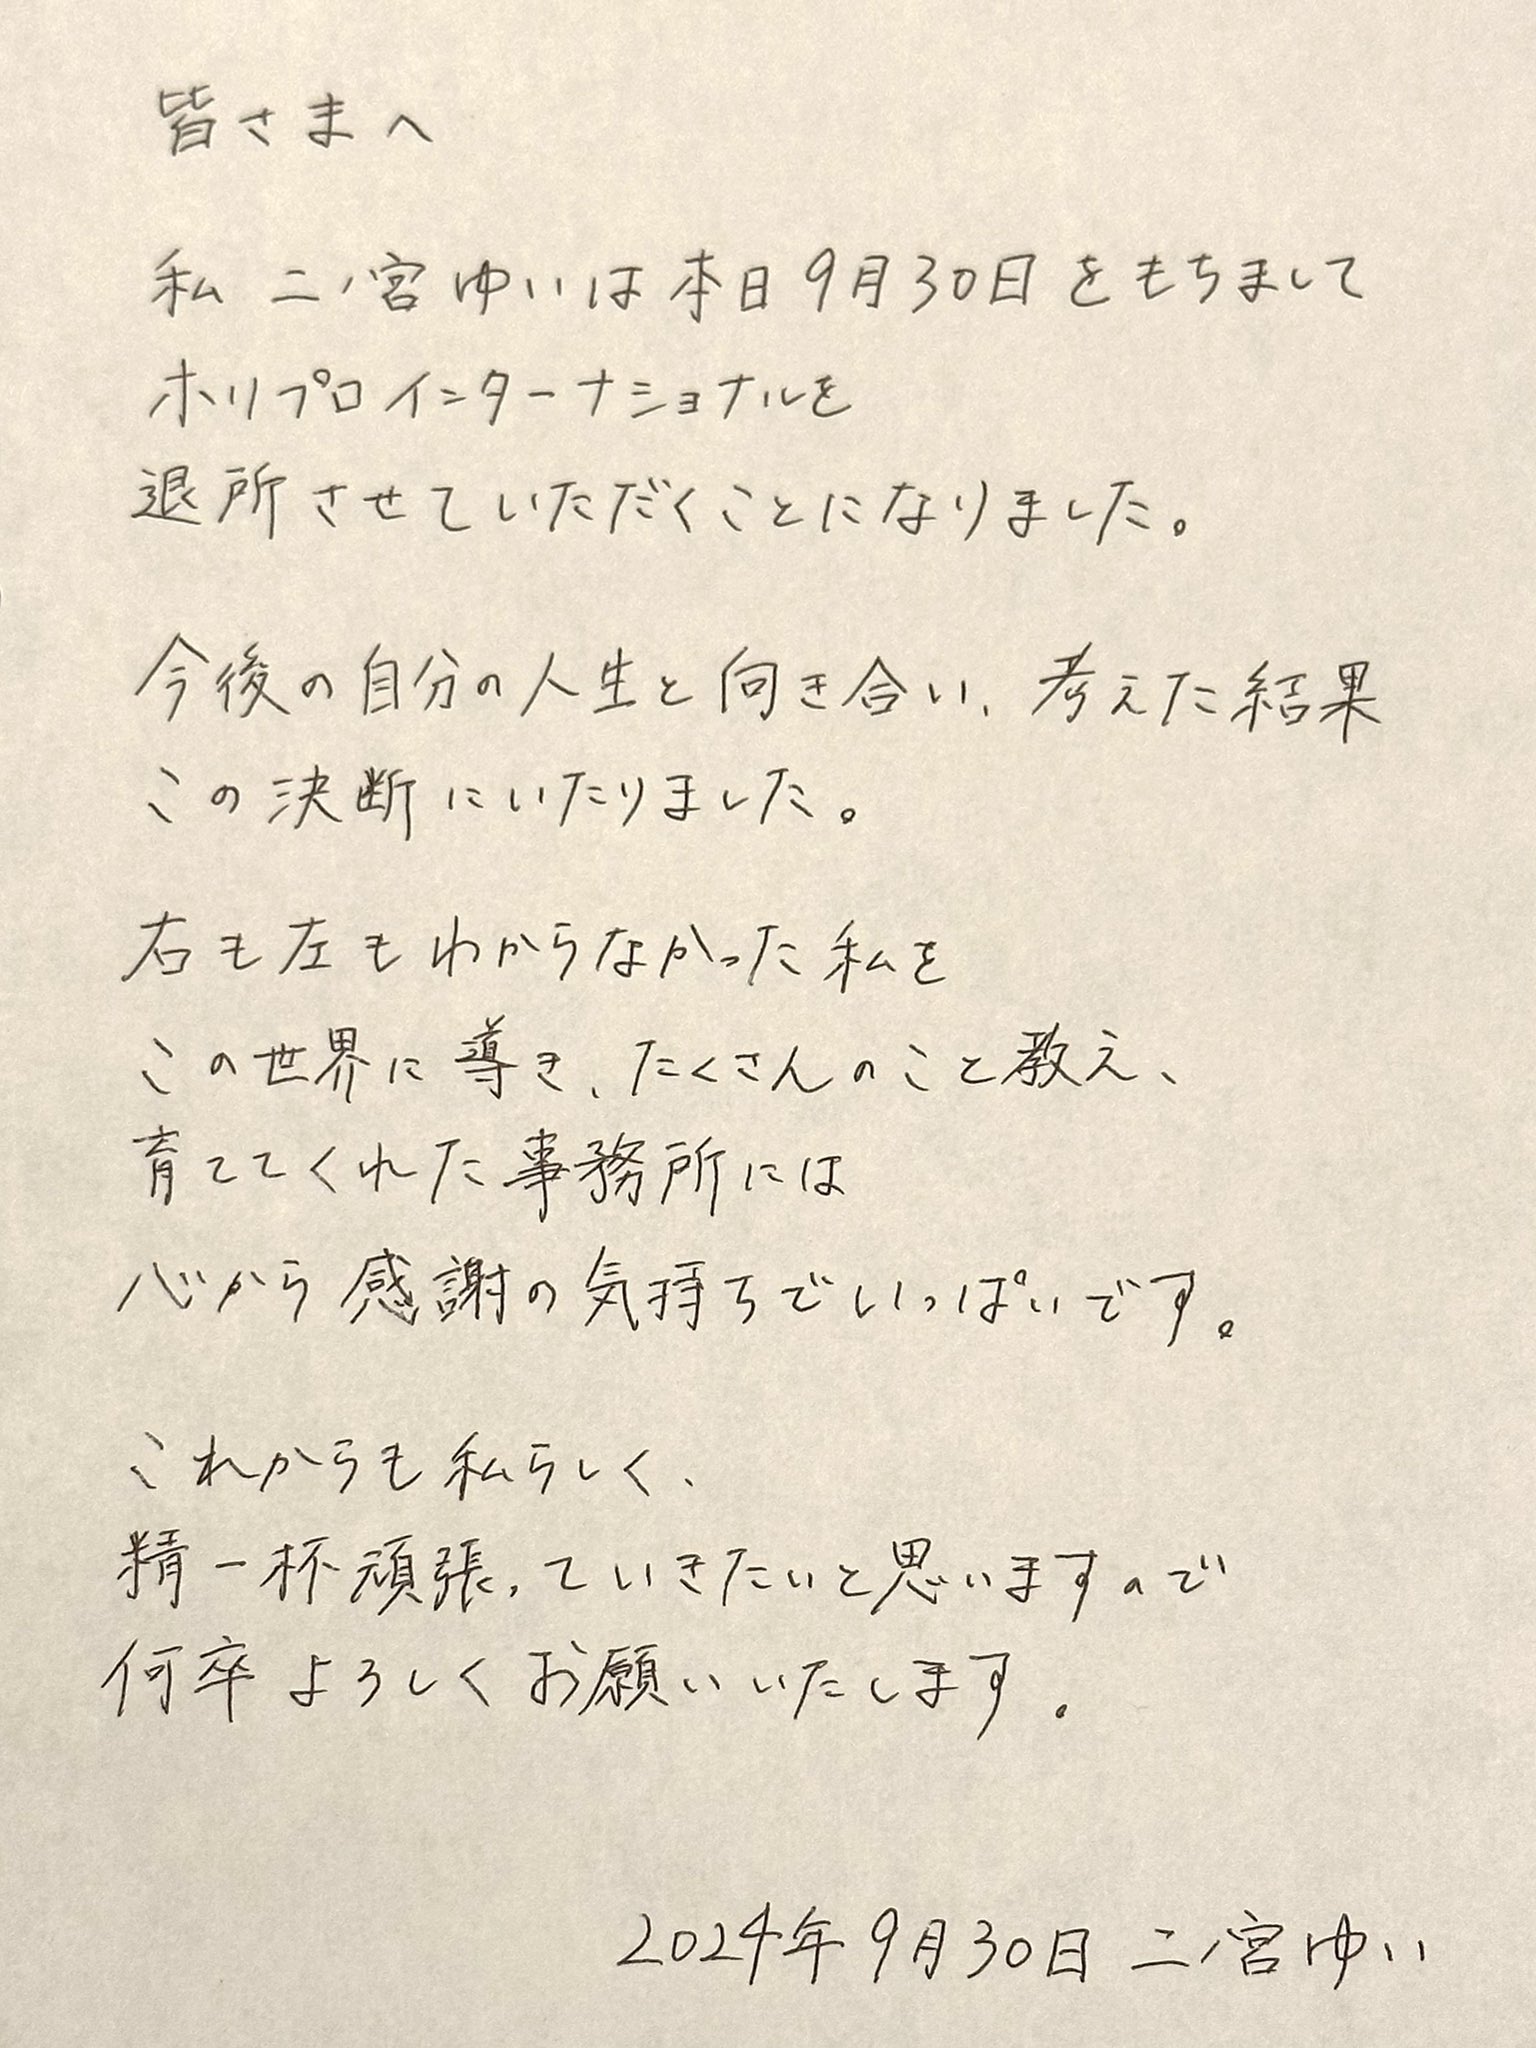 皆さまへ
私 二ノ宮ゆいは本日9月30日をもちまして
ホリプロインターナショナルを
退所させていただくことになりました。
今後の自分の人生と向き合い、考えた結果
この決断にいたりました。
右も左もわからなかった私を
この世界に導き、たくさんのこと教え、
育ててくれた事務所には
心から感謝の気持ちでいっぱいです。
これからも私らしく、
精一杯頑張っていきたいと思いますので
何卒よろしくお願いいたします。
2024年9月30日 二ノ宮ゆい